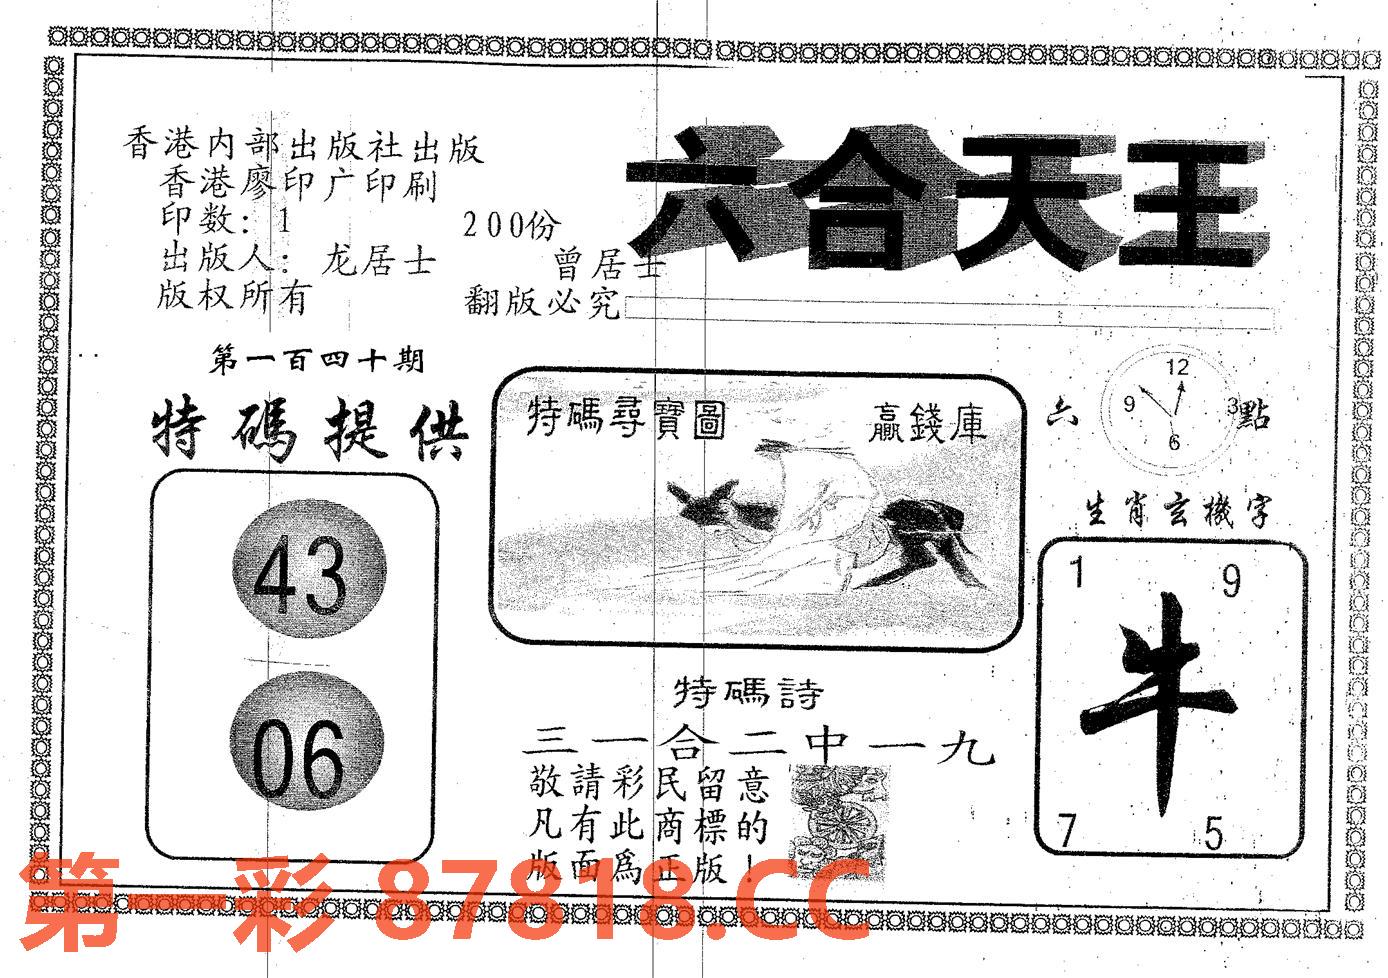 香港内部出版社出版
香港廖印广印刷
印数：1 200份
出版人：龙居士 曾居士
版权所有 翻版必究
六合天王
第一百四十期
特碼提供
43
06
特碼尋寶圖 贏錢庫
六 點
12
9 3
6
生肖玄機字
1 9
牛
7 5
特碼詩
三一合二中一九
敬請彩民留意
凡有此商標的
版面爲正版！
第一彩 87818.CC